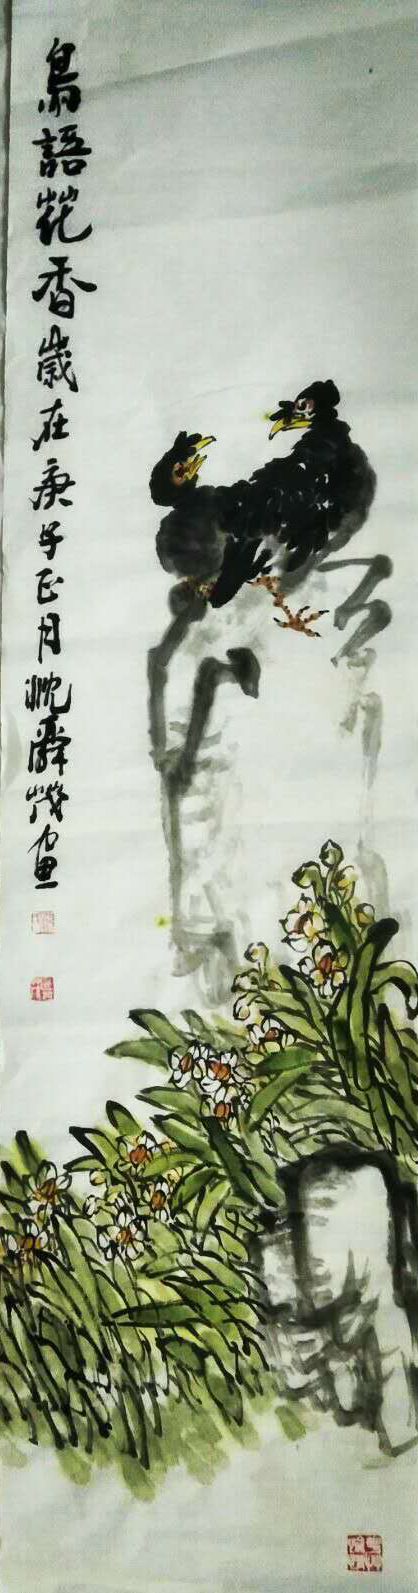 鳥語花香歲在庚子正月沈舜茂畫